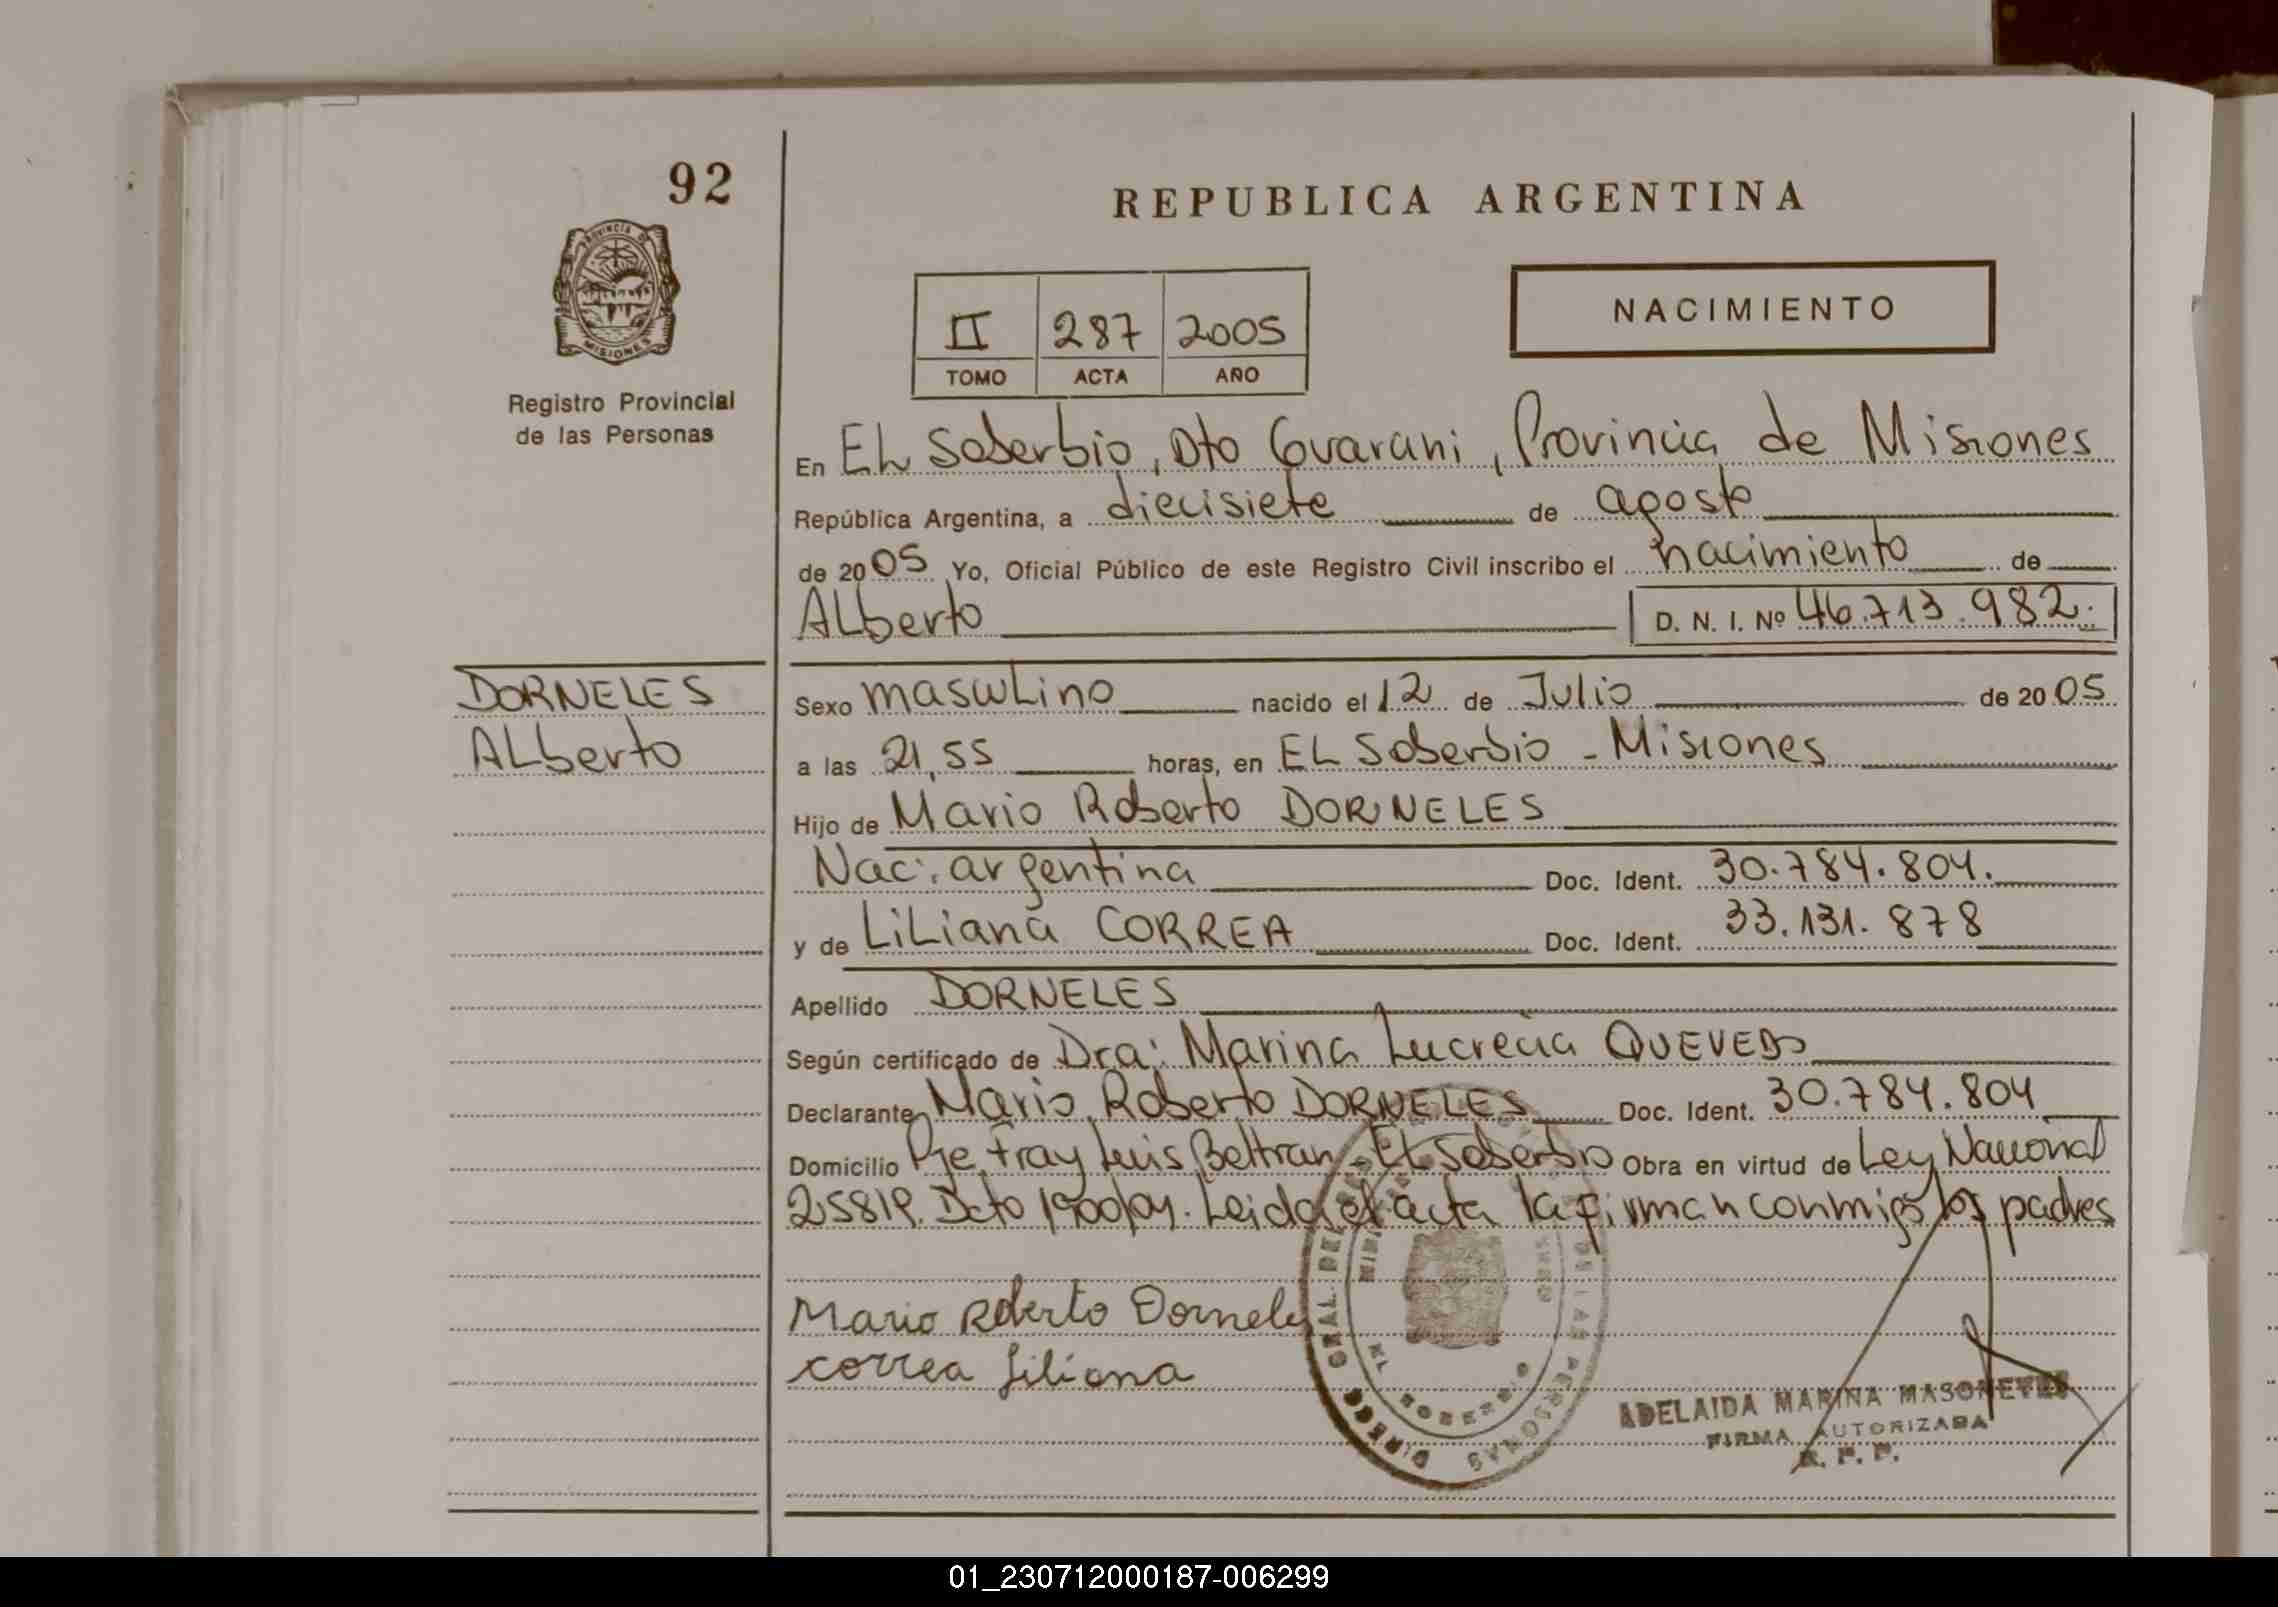 92
REPUBLICA ARGENTINA
PROVINCIA DE
MISIONES
Registro Provincial
de las Personas
II 287 2005
TOMO ACTA AÑO
NACIMIENTO
En EL Soberbio, Dto Guarani, Provincia de Misiones
República Argentina, a diecisiete de agosto
de 2005 Yo, Oficial Público de este Registro Civil inscribo el nacimiento de
ALberto D. N. I. Nº 46.713.982.
DORNELES
ALberto
Sexo mascuLino nacido el 12 de Julio de 2005
a las 21,55 horas, en EL Soberbio - Misiones
Hijo de Mario Roberto DORNELES
Nac: argentina Doc. Ident. 30.784.804.
y de LiLiana CORREA Doc. Ident. 33.131.878
Apellido DORNELES
Según certificado de Dra: Marina Lucrecia QUEVEDO
Declarante Mario Roberto DORNELES Doc. Ident. 30.784.804
Domicilio Pje Fray Luis Beltran - EL Soberbio Obra en virtud de Ley Nacional
25819. Dcto 1900/04. Leida el acta la firman conmigo los padres
Mario Roberto Dorneles
Correa Liliana
DIRECC GRAL. DE LAS PERSONAS
EL SOBERBIO
ADELAIDA MARINA MASONEYRES
FIRMA AUTORIZADA
R. P. P.
01_230712000187-006299